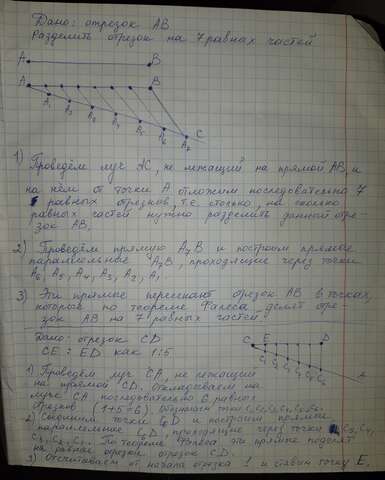 Дано: отрезок AB
Разделить отрезок на 7 равных частей
A B
A B
A₁ A₂ A₃ A₄ A₅ A₆ A₇ C
1) Проведём луч AC, не лежащий на прямой AB, и
на нём от точки A отложим последовательно 7
равных отрезков, т.е. столько, на сколько
равных частей нужно разделить данный отре-
зок AB.
2) Проведём прямую A₇B и построим прямые
параллельные A₇B, проходящие через точки
A₆, A₅, A₄, A₃, A₂, A₁
3) Эти прямые пересекают отрезок AB в точках,
которые по теореме Фалеса делят отре-
зок AB на 7 равных частей.
Дано: отрезок CD
CE : ED как 1:5
C E D
C₁ C₂ C₃ C₄ C₅ C₆ A
1) Проведём луч CA, не лежащий
на прямой CD. Откладываем на
луче CA последовательно 6 равных
отрезков (1+5=6). Обозначим точки C₁C₂C₃C₄C₅C₆.
2) Соединим точки C₆D и построим прямые
параллельные C₆D, проходящие через точки C₅, C₄,
C₃, C₂, C₁. По теореме Фалеса эти прямые поделят
на равные отрезки отрезок CD.
3) Отсчитываем от начала отрезка 1 и ставим точку E.